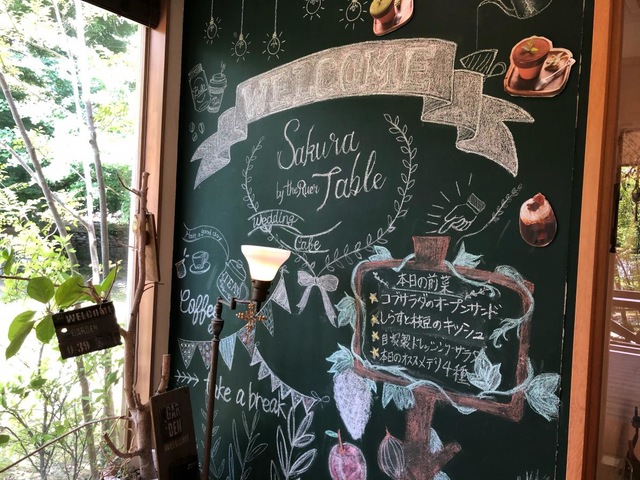 WELCOME
Sakura
by the River
Table
Wedding
Cafe
Coffee
take a break
本日の前菜
コブサラダのオープンサンド
しらすと枝豆のキッシュ
自家製ドレッシングサラダ
本日のオススメデリ4種
WELCOME
GARDEN
GAR
DEN